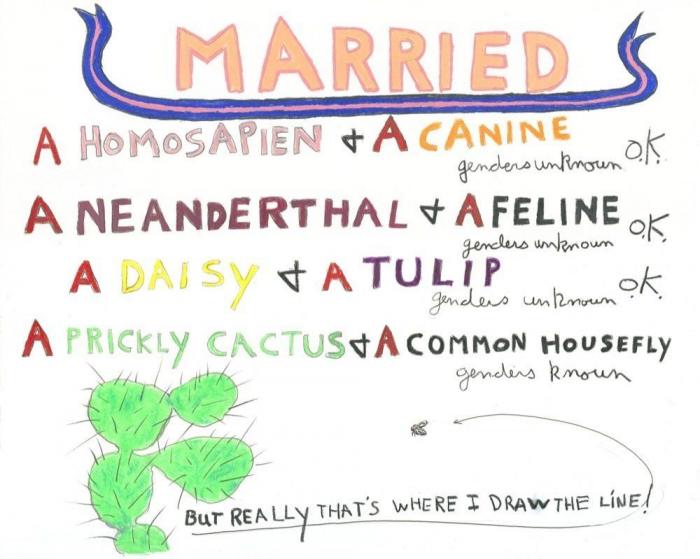 MARRIED
A HOMOSAPIEN & A CANINE
genders unknown O.K.
A NEANDERTHAL & A FELINE
genders unknown O.K.
A DAISY & A TULIP
genders unknown O.K.
A PRICKLY CACTUS & A COMMON HOUSEFLY
genders known
BUT REALLY THAT'S WHERE I DRAW THE LINE!